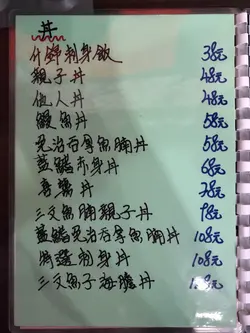 丼
什錦刺身飯 38元
親子丼 48元
他人丼 48元
鰻魚丼 58元
免治吞拿魚腩丼 58元
藍鰭赤身丼 68元
喜喜丼 78元
三文魚腩親子丼 78元
藍鰭免治吞拿魚腩丼 108元
刺身丼 108元
三文魚子海膽丼 元